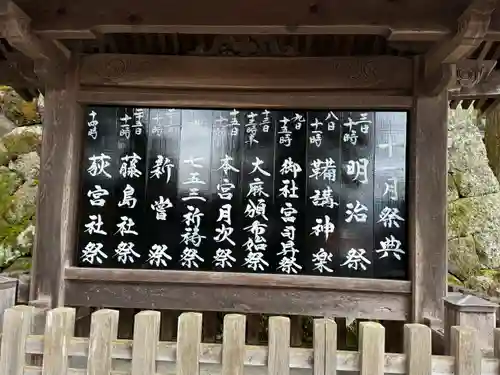 十一月祭典
三日 十時 明治祭
八日 十一時 鞴講神楽
九日 十五時 御社宮司月祭
大麻頒布始祭
十五日 十時 本宮月次祭
七五三祈祷祭
十時 新嘗祭
二十五日 十一時 藤島社祭
十四時 荻宮社祭